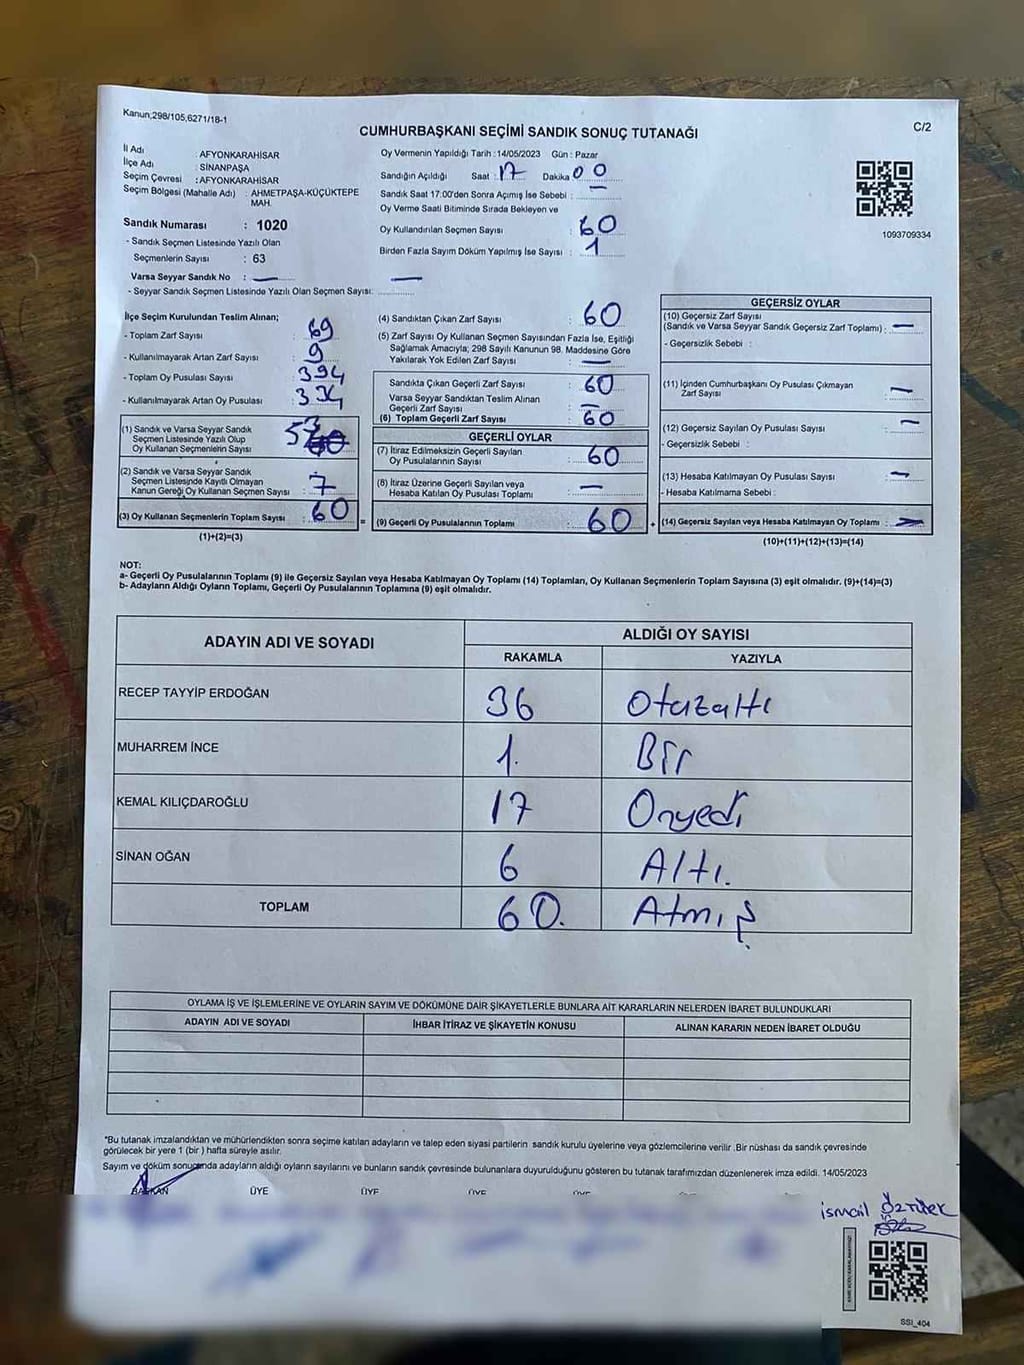 Kanun;298/105,6271/18-1
C/2
CUMHURBAŞKANI SEÇİMİ SANDIK SONUÇ TUTANAĞI
İl Adı : AFYONKARAHİSAR
İlçe Adı : SİNANPAŞA
Seçim Çevresi : AFYONKARAHİSAR
Seçim Bölgesi (Mahalle Adı) : AHMETPAŞA-KÜÇÜKTEPE MAH.
Sandık Numarası : 1020
- Sandık Seçmen Listesinde Yazılı Olan
Seçmenlerin Sayısı : 63
Varsa Seyyar Sandık No : —
- Seyyar Sandık Seçmen Listesinde Yazılı Olan Seçmen Sayısı: —
Oy Vermenin Yapıldığı Tarih : 14/05/2023 Gün : Pazar
Sandığın Açıldığı Saat : 17 Dakika 00
Sandık Saat 17.00'den Sonra Açımış İse Sebebi : —
Oy Verme Saati Bitiminde Sırada Bekleyen ve
Oy Kullandırılan Seçmen Sayısı : 60
Birden Fazla Sayım Döküm Yapılmış İse Sayısı : 1
1093709334
İlçe Seçim Kurulundan Teslim Alınan;
- Toplam Zarf Sayısı : 69
- Kullanılmayarak Artan Zarf Sayısı : 9
- Toplam Oy Pusulası Sayısı : 394
- Kullanılmayarak Artan Oy Pusulası : 334
(1) Sandık ve Varsa Seyyar Sandık
Seçmen Listesinde Yazılı Olup
Oy Kullanan Seçmenlerin Sayısı : 53
(2) Sandık ve Varsa Seyyar Sandık
Seçmen Listesinde Kayıtlı Olmayan
Kanun Gereği Oy Kullanan Seçmen Sayısı : 7
(3) Oy Kullanan Seçmenlerin Toplam Sayısı : 60
(1)+(2)=(3)
(4) Sandıktan Çıkan Zarf Sayısı : 60
(5) Zarf Sayısı Oy Kullanan Seçmen Sayısından Fazla İse, Eşitliği
Sağlamak Amacıyla; 298 Sayılı Kanunun 98. Maddesine Göre
Yakılarak Yok Edilen Zarf Sayısı : —
Sandıkta Çıkan Geçerli Zarf Sayısı : 60
Varsa Seyyar Sandıktan Teslim Alınan
Geçerli Zarf Sayısı : —
(6) Toplam Geçerli Zarf Sayısı : 60
GEÇERLİ OYLAR
(7) İtiraz Edilmeksizin Geçerli Sayılan
Oy Pusulalarının Sayısı : 60
(8) İtiraz Üzerine Geçerli Sayılan veya
Hesaba Katılan Oy Pusulası Toplamı : —
= (9) Geçerli Oy Pusulalarının Toplamı : 60 +
GEÇERSİZ OYLAR
(10) Geçersiz Zarf Sayısı
(Sandık ve Varsa Seyyar Sandık Geçersiz Zarf Toplamı) : —
- Geçersizlik Sebebi :
(11) İçinden Cumhurbaşkanı Oy Pusulası Çıkmayan
Zarf Sayısı : —
(12) Geçersiz Sayılan Oy Pusulası Sayısı : —
- Geçersizlik Sebebi :
(13) Hesaba Katılmayan Oy Pusulası Sayısı : —
- Hesaba Katılmama Sebebi :
(14) Geçersiz Sayılan veya Hesaba Katılmayan Oy Toplamı : —
(10)+(11)+(12)+(13)=(14)
NOT:
a- Geçerli Oy Pusulalarının Toplamı (9) ile Geçersiz Sayılan veya Hesaba Katılmayan Oy Toplamı (14) Toplamları, Oy Kullanan Seçmenlerin Toplam Sayısına (3) eşit olmalıdır. (9)+(14)=(3)
b- Adayların Aldığı Oyların Toplamı, Geçerli Oy Pusulalarının Toplamına (9) eşit olmalıdır.
ADAYIN ADI VE SOYADI ALDIĞI OY SAYISI
RAKAMLA YAZIYLA
RECEP TAYYİP ERDOĞAN 36 Otuzaltı
MUHARREM İNCE 1. Bir
KEMAL KILIÇDAROĞLU 17 Onyedi
SİNAN OĞAN 6 Altı.
TOPLAM 60. Atmış
OYLAMA İŞ VE İŞLEMLERİNE VE OYLARIN SAYIM VE DÖKÜMÜNE DAİR ŞİKAYETLERLE BUNLARA AİT KARARLARIN NELERDEN İBARET BULUNDUKLARI
ADAYIN ADI VE SOYADI İHBAR İTİRAZ VE ŞİKAYETİN KONUSU ALINAN KARARIN NEDEN İBARET OLDUĞU
*Bu tutanak imzalandıktan ve mühürlendikten sonra seçime katılan adayların ve talep eden siyasi partilerin sandık kurulu üyelerine veya gözlemcilerine verilir .Bir nüshası da sandık çevresinde
görülecek bir yere 1 (bir ) hafta süreyle asılır.
Sayım ve döküm sonucunda adayların aldığı oyların sayılarını ve bunların sandık çevresinde bulunanlara duyurulduğunu gösteren bu tutanak tarafımızdan düzenlenerek imza edildi. 14/05/2023
BAŞKAN ÜYE ÜYE ÜYE
ismail Öztürk
SSI_404